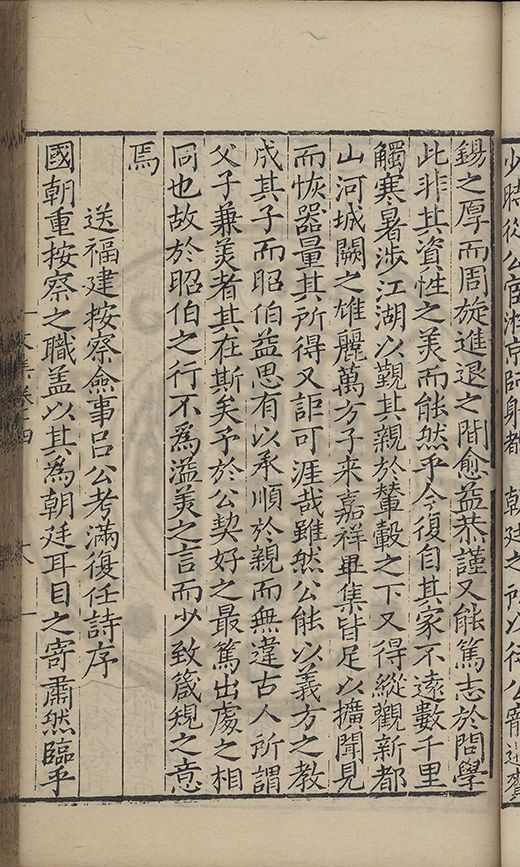 少時從公宦游京師躬都　朝廷之所以待公
錫之厚而周旋進退之間愈益恭謹又能篤志於問學
此非其資性之美而能然乎今復自其家不遠數千里
觸寒暑涉江湖以覲其親於輦轂之下又得縱觀新都
山河城闕之雄麗萬方子来嘉祥畢集皆足以擴聞見
而恢器量其所得又詎可涯哉雖然公能以義方之教
成其子而昭伯益思有以承順於親而無違古人所謂
父子兼美者其在斯矣予於公契好之最篤出處之相
同也故於昭伯之行不為溢美之言而少致箴規之意
焉
送福建按察僉事吕公考滿復任詩序
國朝重按察之職盖以其為朝廷耳目之寄肅然臨乎
文集卷十四